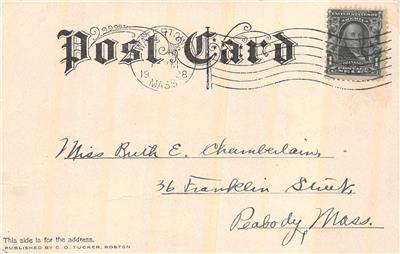 Post Card
19 08
MASS
1
Miss Ruth E. Chamberlain,
36 Franklin Street,
Peabody Mass.
This side is for the address.
PUBLISHED BY C. O. TUCKER, BOSTON